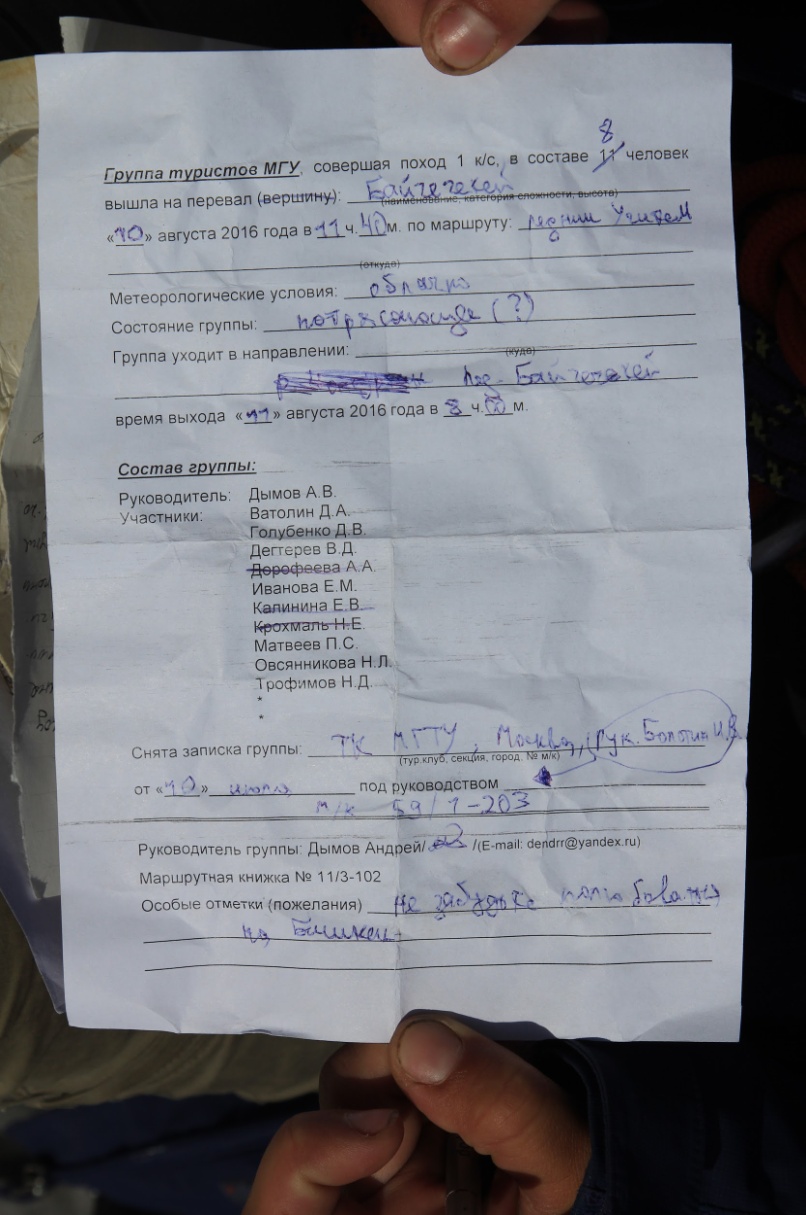 8
Группа туристов МГУ, совершая поход 1 к/с, в составе 11 человек
вышла на перевал (вершину): Байчечекей
(наименование, категория сложности, высота)
«10» августа 2016 года в 11 ч. 40 м. по маршруту: Учителя
(откуда)
Метеорологические условия: облачно
Состояние группы: потрясающее (?)
Группа уходит в направлении:
(куда)
Байчечекей
время выхода «11» августа 2016 года в 8 ч. 00 м.
Состав группы:
Руководитель: Дымов А.В.
Участники: Ватолин Д.А.
Голубенко Д.В.
Дегтерев В.Д.
Дорофеева А.А.
Иванова Е.М.
Калинина Е.В.
Крохмаль Н.Е.
Матвеев П.С.
Овсянникова Н.Л.
Трофимов Н.Д.
*
*
Снята записка группы: ТК МГТУ, Москва, (рук. Болотин И.В.
(тур.клуб, секция, город, № м/к)
от «10» июля под руководством
м/к 59/1-203
Руководитель группы: Дымов Андрей/ /(E-mail: dendrr@yandex.ru)
Маршрутная книжка № 11/3-102
Особые отметки (пожелания) Не забудьте полюбоваться
на Бишкек